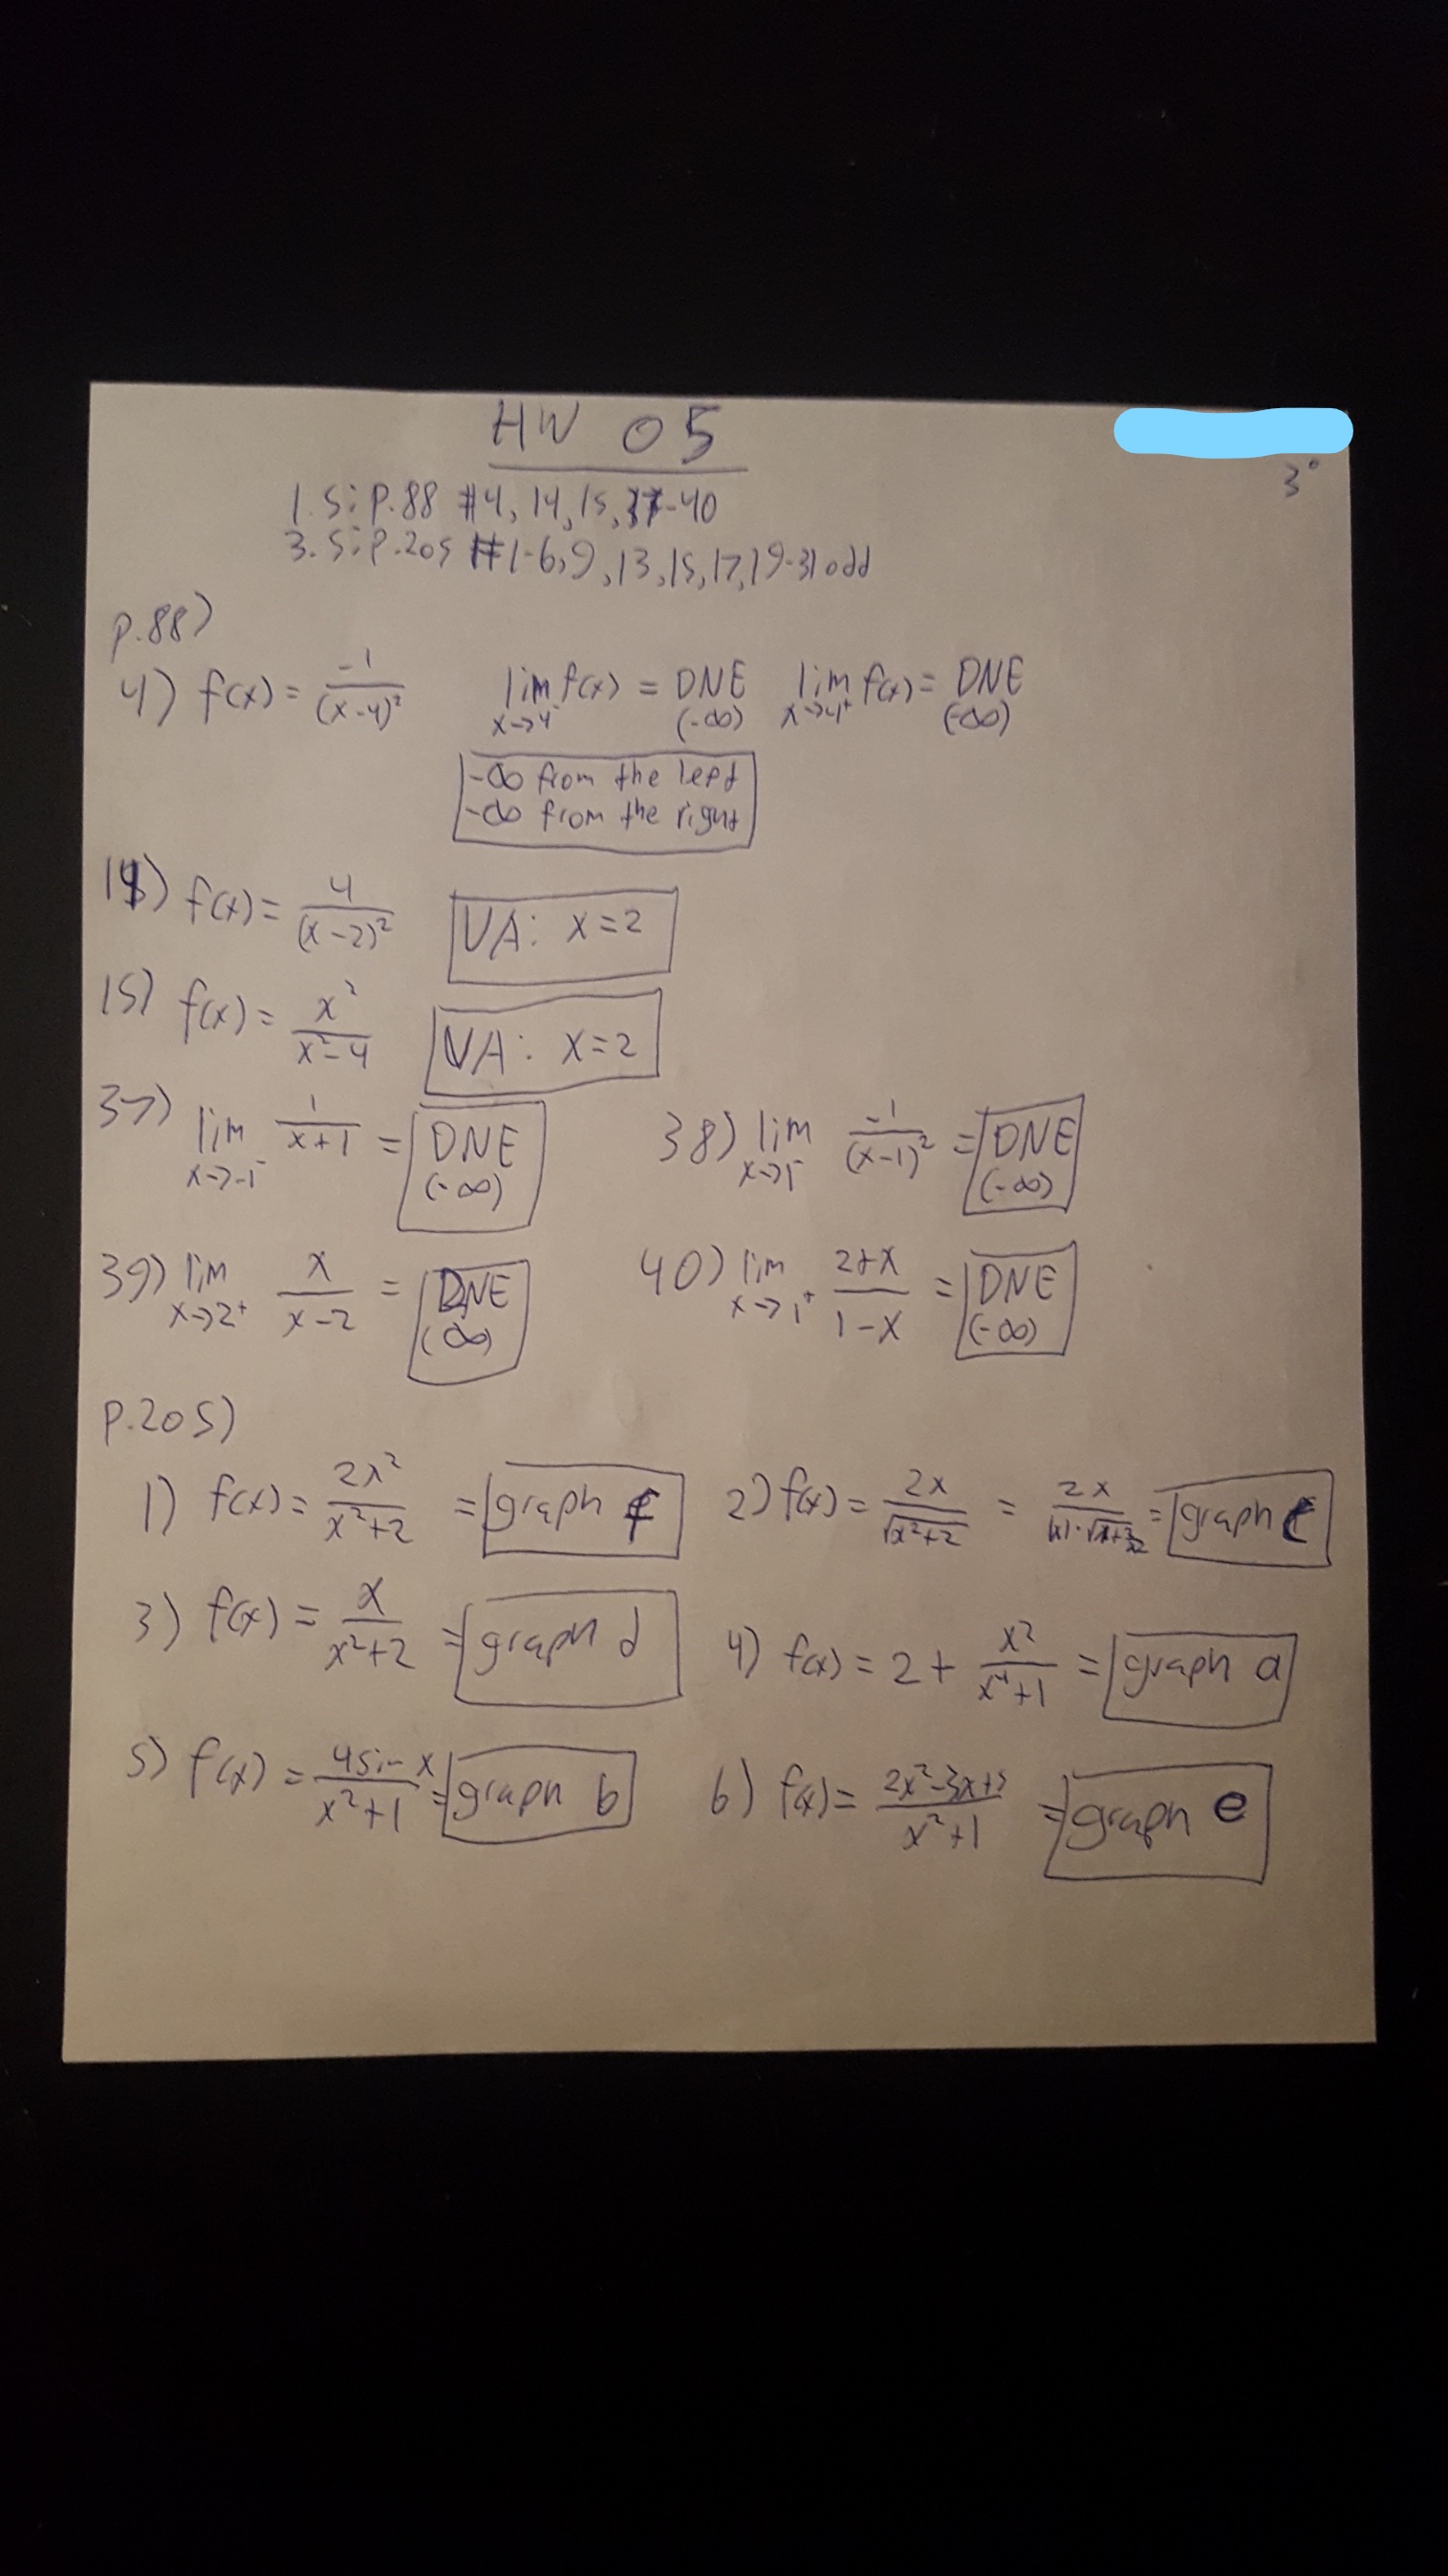 HW 05
3°
1.5: P.88 #4, 14, 15, 37-40
3.5: P.205 #1-6, 9, 13, 15, 17, 19-31 odd
P.88)
4) f(x) = -1/(x-4)² lim x→4⁻ f(x) = DNE (-∞) lim x→4⁺ f(x) = DNE (-∞)
-∞ from the left
-∞ from the right
14) f(x) = 4/(x-2)² VA: x=2
15) f(x) = x²/(x²-4) VA: x=2
37) lim x→-1⁻ 1/(x+1) = DNE (-∞) 38) lim x→1⁻ -1/(x-1)² = DNE (-∞)
39) lim x→2⁺ x/(x-2) = DNE (∞) 40) lim x→1⁺ (2+x)/(1-x) = DNE (-∞)
P.205)
1) f(x) = 2x²/(x²+2) = graph f 2) f(x) = 2x/√(x²+2) = 2x/ = graph
3) f(x) = x/(x²+2) = graph d 4) f(x) = 2 + x²/(x⁴+1) = graph a
5) f(x) = 4sin x/(x²+1) = graph b 6) f(x) = (2x²-3x+5)/(x²+1) = graph e